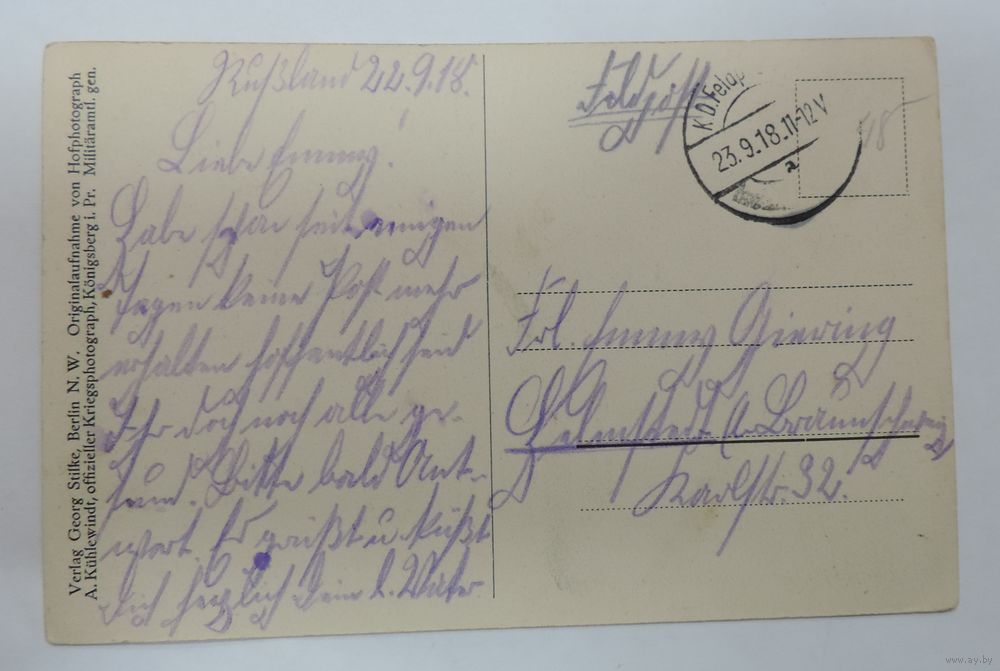 Verlag Georg Stilke, Berlin N. W. Originalaufnahme von Hofphotograph
A. Kühlewindt, offizieller Kriegsphotograph, Königsberg i. Pr. Militäramtl. gen.
Rußland 22.9.18.
Liebe Emmy!
Habe schon seit einigen
Tagen keine Post mehr
erhalten hoffentlich seid
Ihr doch noch alle ge-
sund. Bitte bald Ant-
wort. Es grüßt u. küßt
Dich herzlich Dein l. Vater
Feldpost
K.D.Feldp
23.9.18.11-12V
a
48
Frl. Emmy Giering
Helmstedt i. Braunschweig
Karlstr. 32.
www.ay.by